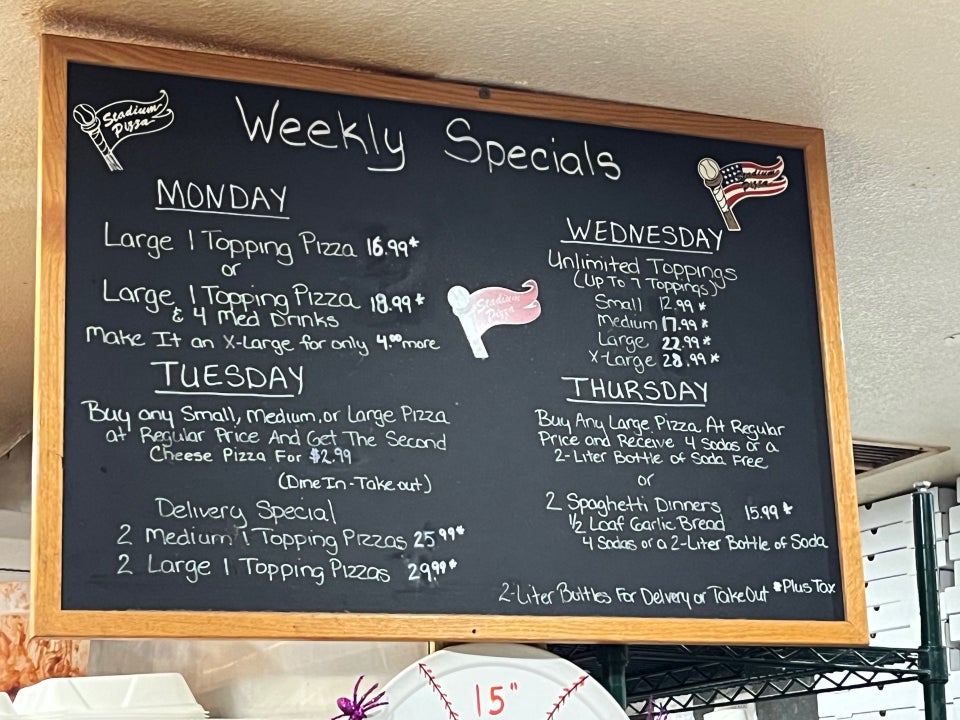 Stadium
Pizza
Weekly Specials
MONDAY
Large 1 Topping Pizza 16.99*
or
Large 1 Topping Pizza 18.99*
& 4 Med Drinks
Make It an X-Large for only 4.00 more
TUESDAY
Buy any Small, Medium, or Large Pizza
at Regular Price And Get The Second
Cheese Pizza For $2.99
(Dine In - Take out)
Delivery Special
2 Medium 1 Topping Pizzas 25.99*
2 Large 1 Topping Pizzas 29.99*
Stadium
Pizza
Stadium
Pizza
WEDNESDAY
Unlimited Toppings
(Up To 7 Toppings)
Small 12.99*
Medium 17.99*
Large 22.99*
X-Large 28.99*
THURSDAY
Buy Any Large Pizza At Regular
Price and Receive 4 Sodas or a
2-Liter Bottle of Soda Free
or
2 Spaghetti Dinners 15.99*
1/2 Loaf Garlic Bread
4 Sodas or a 2-Liter Bottle of Soda
2-Liter Bottles For Delivery or Take Out *Plus Tax
15"